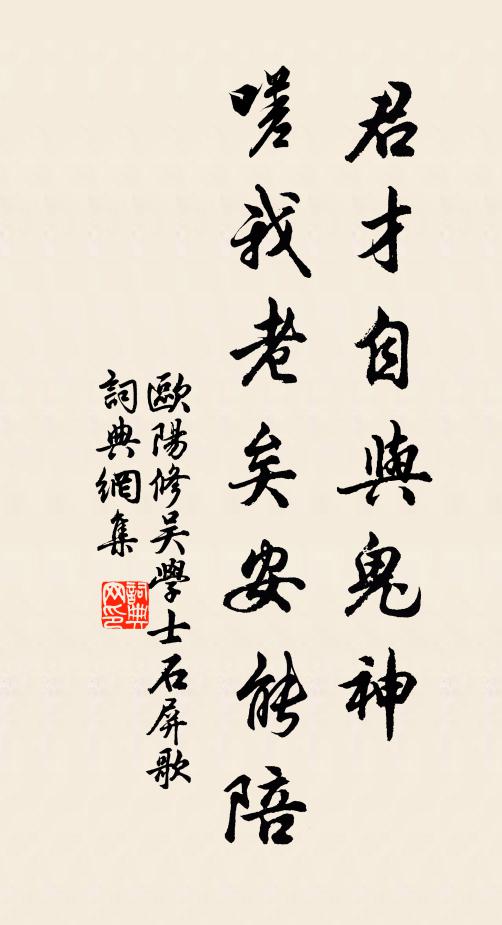 君才自與鬼神
嗟我老矣安能陪
歐陽修吴學士石屏歌
詞典網集
詞典網印